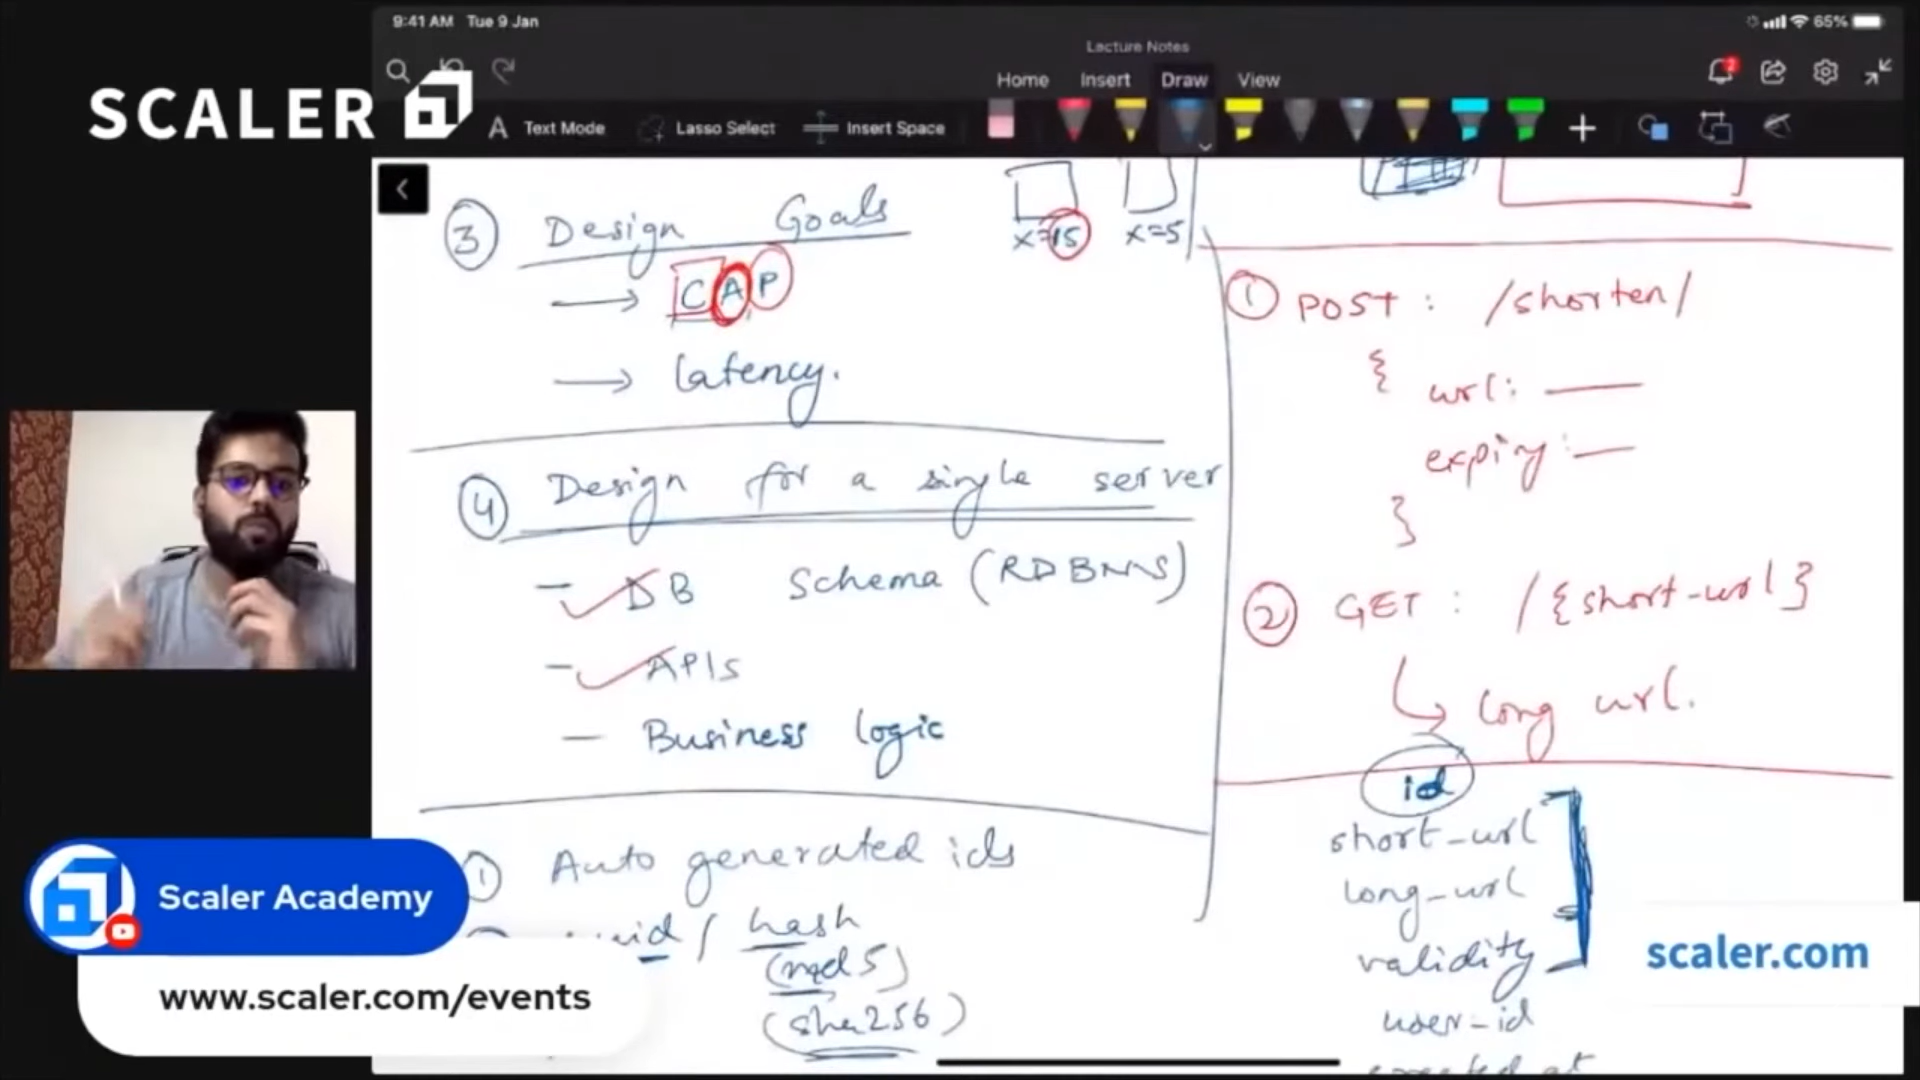 9:41 AM Tue 9 Jan
65%
Lecture Notes
Home Insert Draw View
2
SCALER
Text Mode Lasso Select Insert Space
3 Design Goals
x=15 x=5
→ CAP
→ latency.
4 Design for a single server
- DB Schema (RDBMS)
- APIs
- Business logic
1 Auto generated ids
/ hash
(md5)
(sha256)
1 POST : /shorten/
{
url: —
expiry: —
}
2 GET : /{short-url}
↳ long url.
id
short-url
long-url
validity
user-id
created at
Scaler Academy
www.scaler.com/events
scaler.com